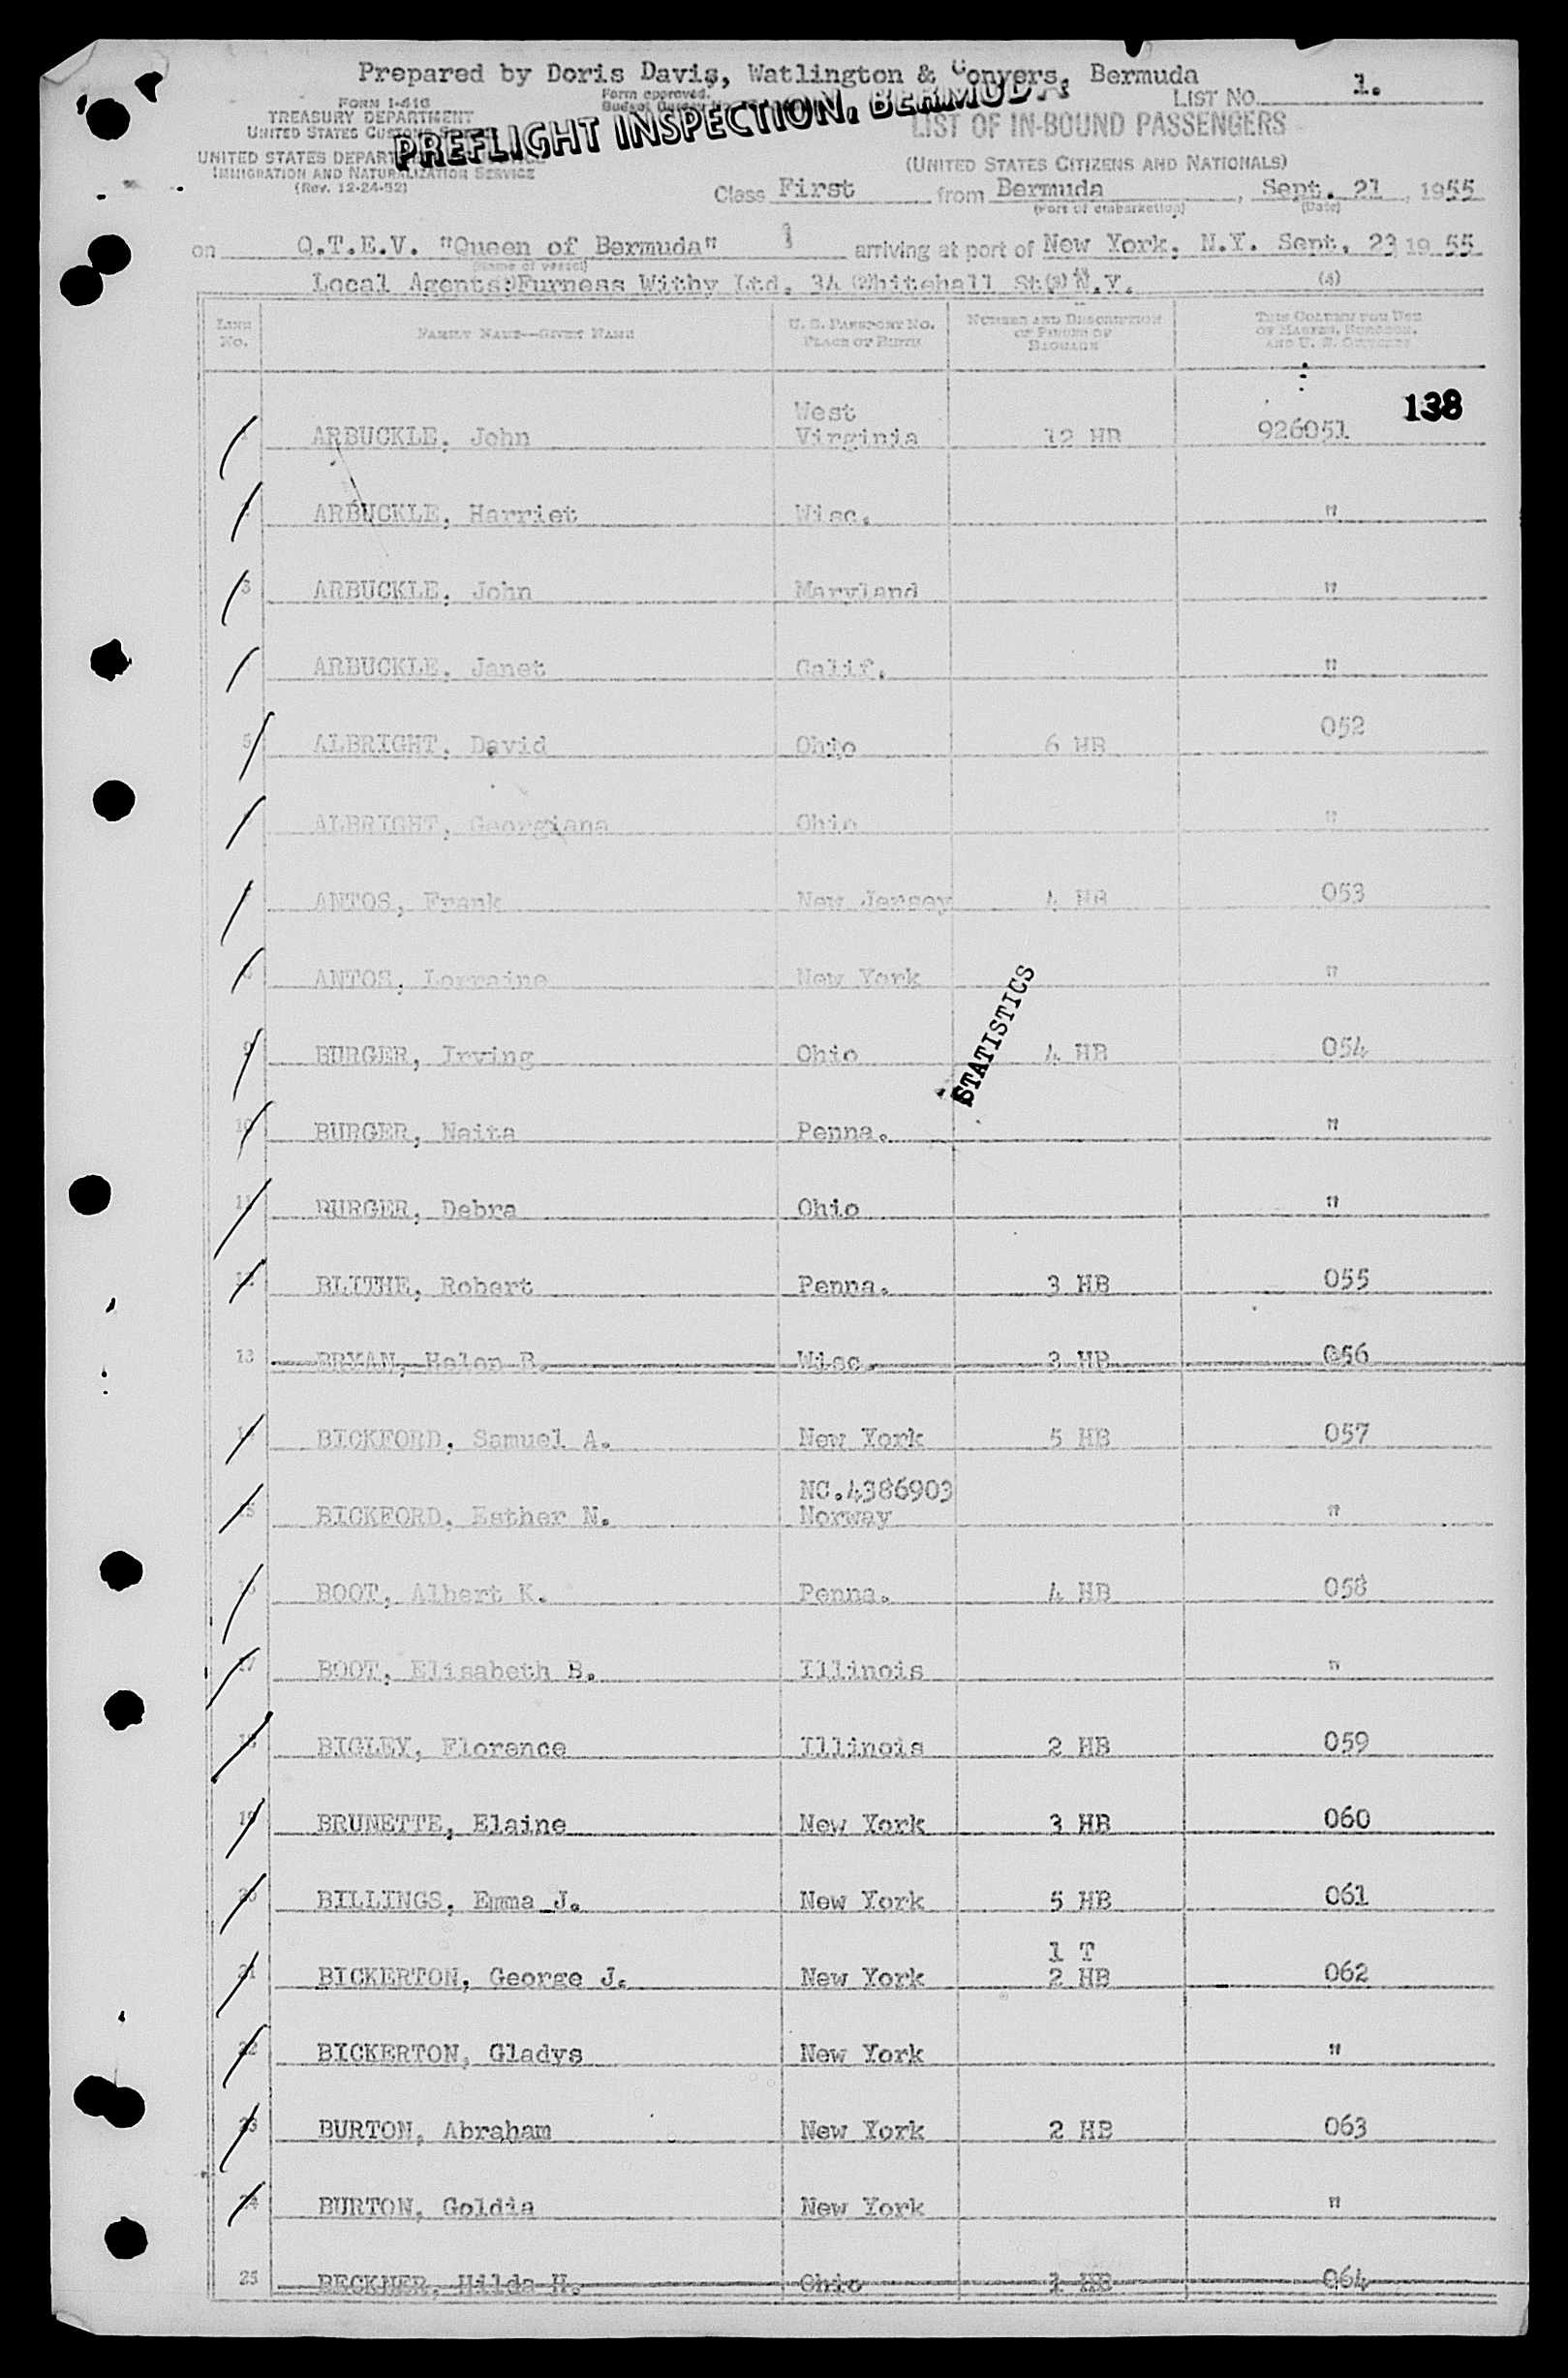 Prepared by Doris Davis, Watlington & Conyers, Bermuda
LIST NO. 1.
FORM I-416
Form approved.
TREASURY DEPARTMENT
UNITED STATES CUSTOMS
PREFLIGHT INSPECTION, BERMUDA
LIST OF IN-BOUND PASSENGERS
UNITED STATES DEPARTMENT
IMMIGRATION AND NATURALIZATION SERVICE
(Rev. 12-24-52)
(UNITED STATES CITIZENS AND NATIONALS)
Class First from Bermuda, Sept. 21, 1955
(Port of embarkation) (Date)
on Q.T.E.V. "Queen of Bermuda" arriving at port of New York, N.Y. Sept. 23 1955
(Name of vessel)
Local Agents: Furness Withy Ltd. 34 Whitehall St. N.Y.
(2) (3) (4)
LINE NO. FAMILY NAME—GIVEN NAME U. S. PASSPORT NO. PLACE OF BIRTH NUMBER AND DESCRIPTION OF PIECES OF BAGGAGE THIS COLUMN FOR USE OF MASTER, SURGEON, AND U. S. OFFICERS
138
1 ARBUCKLE, John West Virginia 12 HB 926051
2 ARBUCKLE, Harriet Wisc. "
3 ARBUCKLE, John Maryland "
ARBUCKLE, Janet Calif. "
5 ALBRIGHT, David Ohio 6 HB 052
ALBRIGHT, Georgiana Ohio "
ANTOS, Frank New Jersey 4 HB 053
ANTOS, Lorraine New York "
STATISTICS
9 BURGER, Irving Ohio 4 HB 054
10 BURGER, Naita Penna. "
11 BURGER, Debra Ohio "
12 BLITHE, Robert Penna. 3 HB 055
13 BRYAN, Helen B. Wisc. 3 HB 056
14 BICKFORD, Samuel A. New York 5 HB 057
15 BICKFORD, Esther N. NC.4386903 Norway "
16 BOOT, Albert K. Penna. 4 HB 058
17 BOOT, Elisabeth B. Illinois "
18 BIGLEY, Florence Illinois 2 HB 059
19 BRUNETTE, Elaine New York 3 HB 060
20 BILLINGS, Emma J. New York 5 HB 061
21 BICKERTON, George J. New York 1 T 2 HB 062
22 BICKERTON, Gladys New York "
23 BURTON, Abraham New York 2 HB 063
24 BURTON, Goldia New York "
25 BECKNER, Hilda H. Ohio 1 HB 064